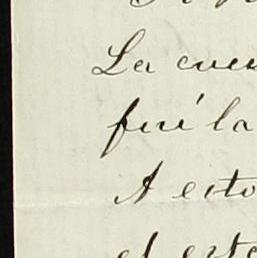 La cuen
fué la
A esto
el este